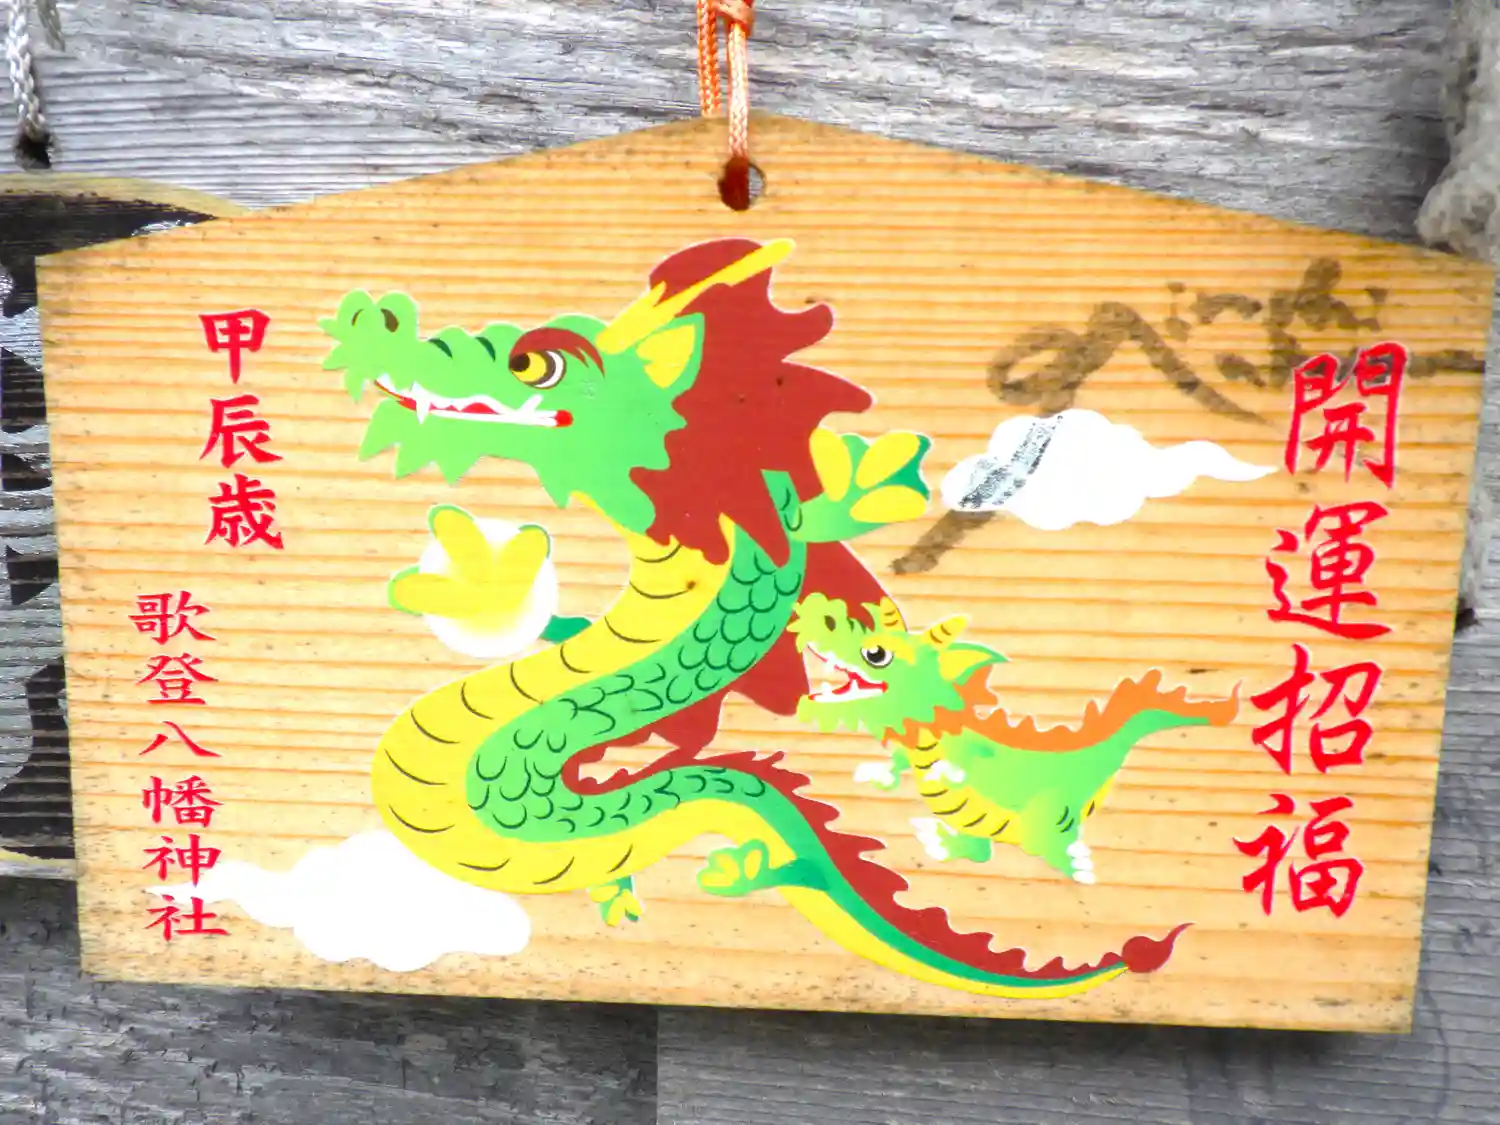 開運招福
甲辰歳
歌登八幡神社